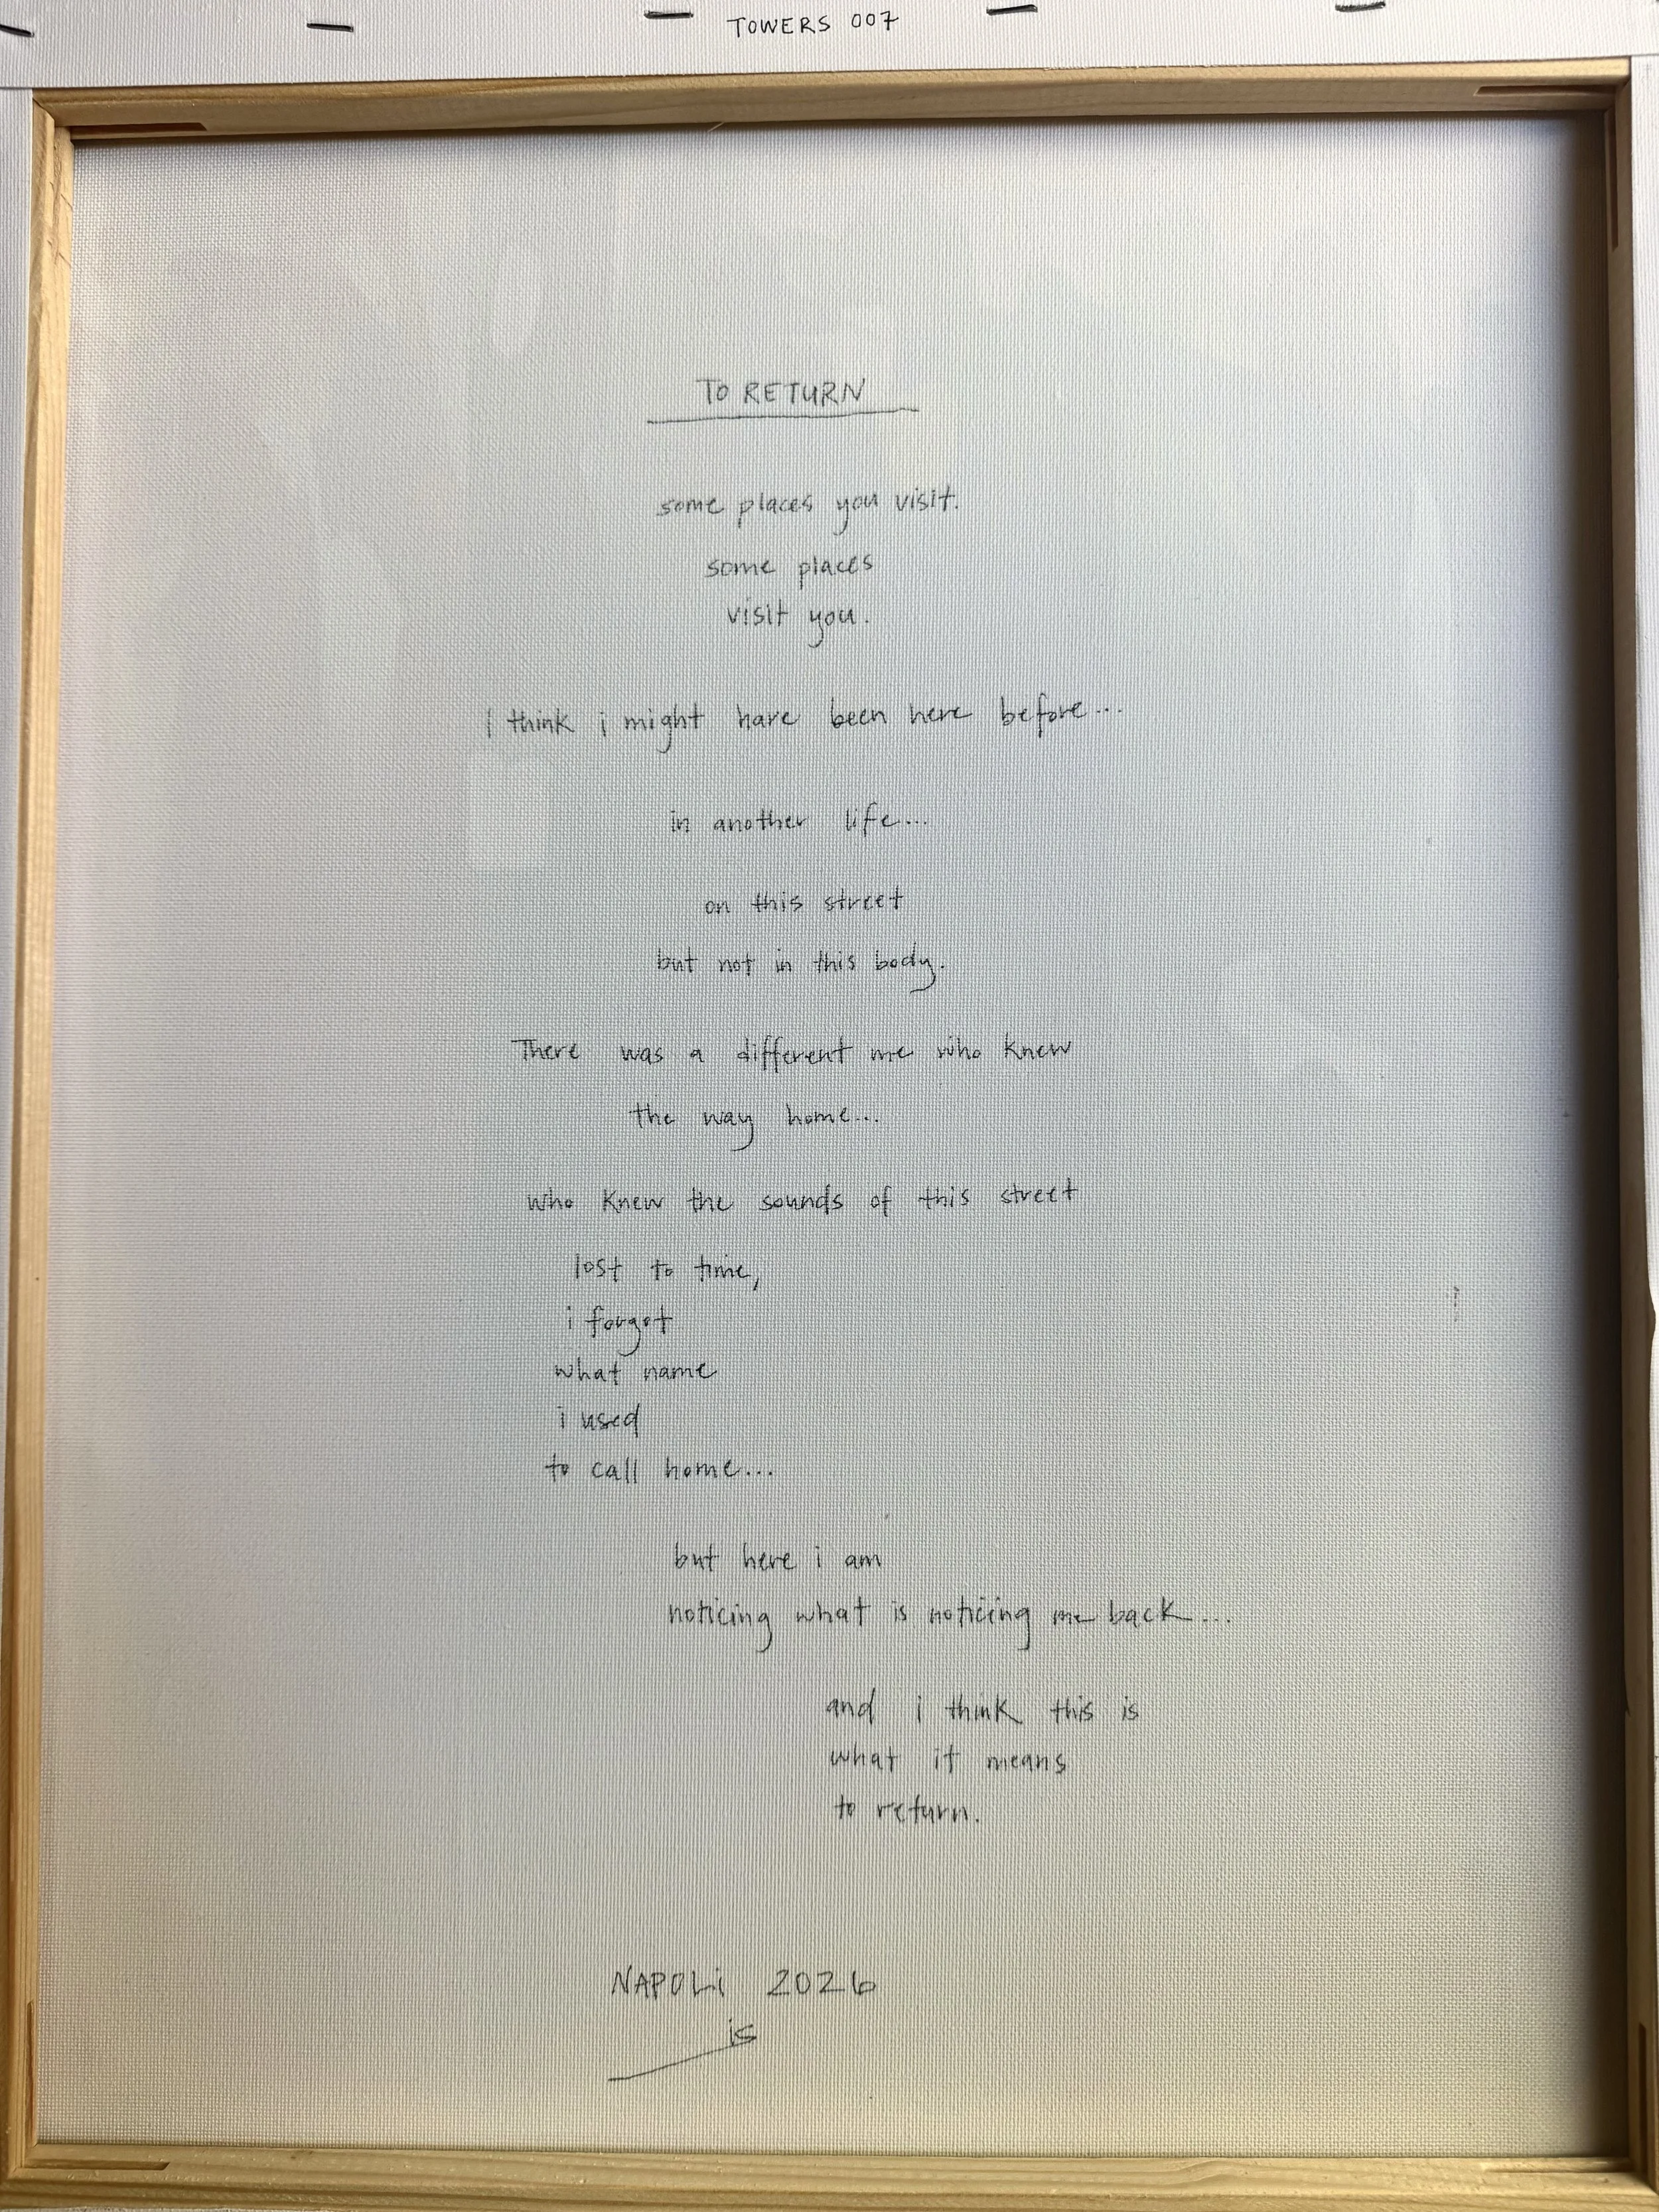 TOWERS 007
TO RETURN
some places you visit.
some places
visit you.
I think i might have been here before...
in another life...
on this street
but not in this body.
There was a different me who knew
the way home...
who knew the sounds of this street
lost to time,
i forgot
what name
i used
to call home...
but here i am
noticing what is noticing me back...
and i think this is
what it means
to return.
NAPOLi 2026
is